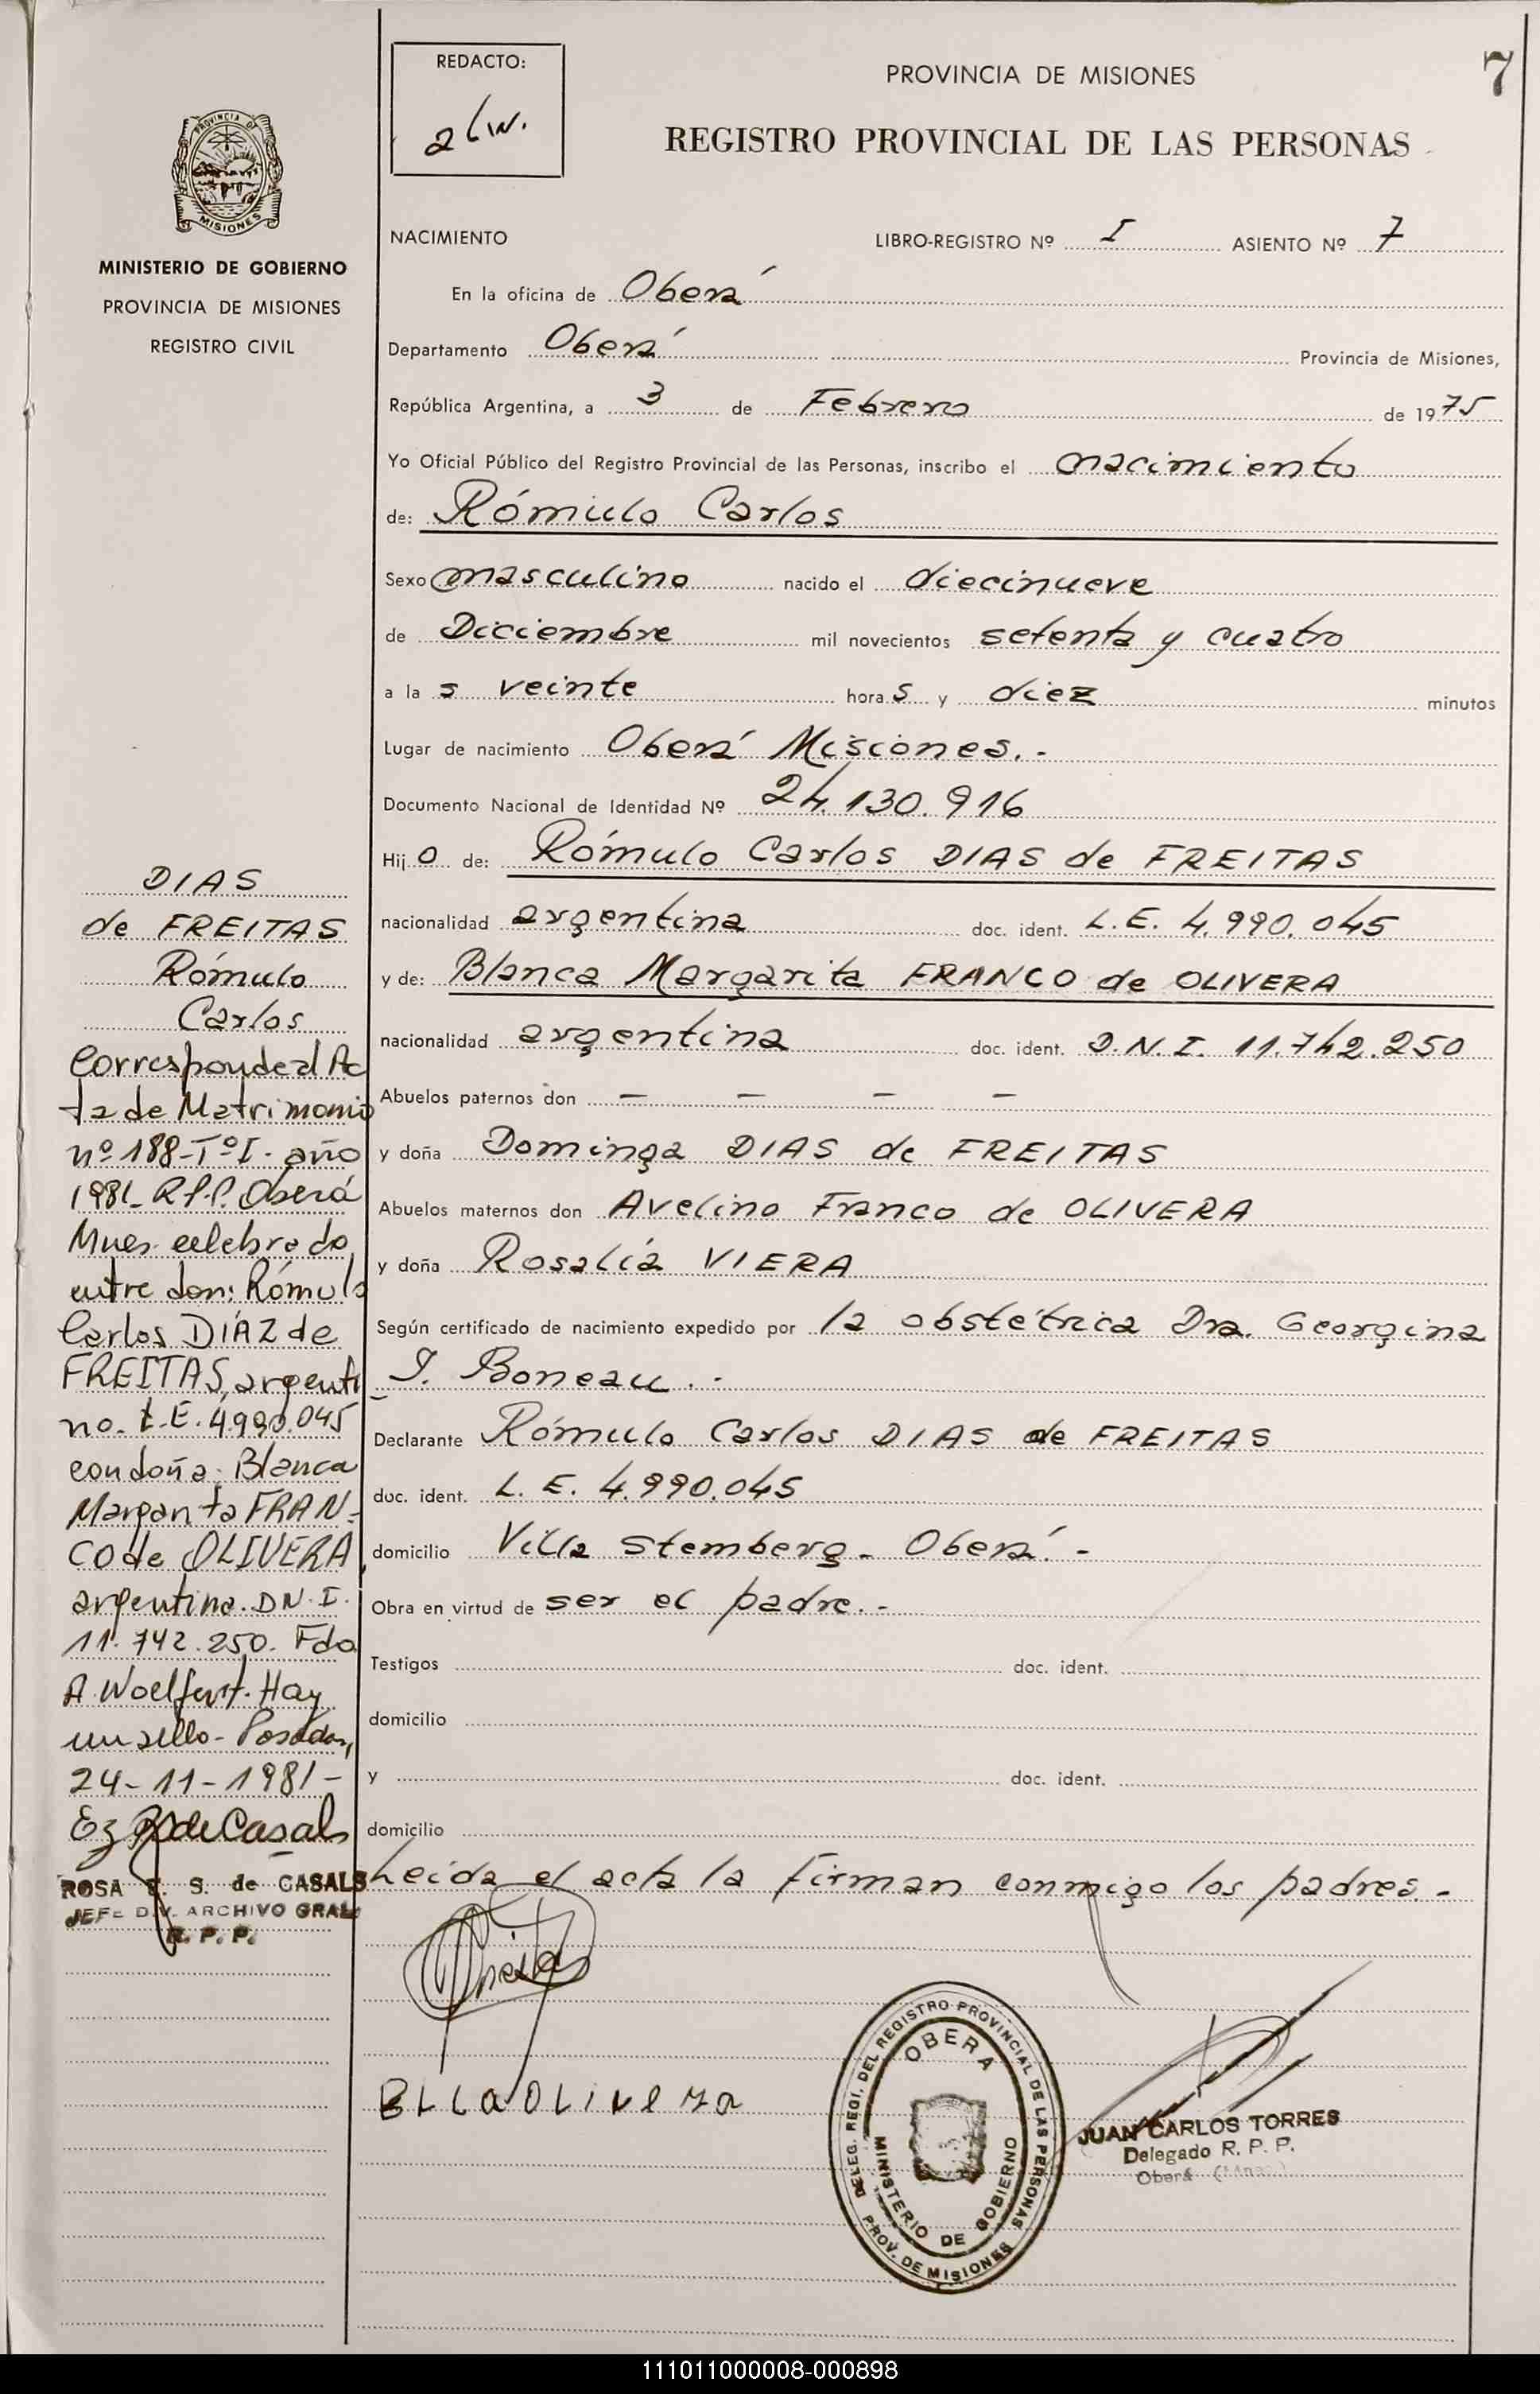 7
REDACTO:
PROVINCIA DE MISIONES
REGISTRO PROVINCIAL DE LAS PERSONAS
PROVINCIA DE
MISIONES
MINISTERIO DE GOBIERNO
PROVINCIA DE MISIONES
REGISTRO CIVIL
NACIMIENTO LIBRO-REGISTRO Nº I ASIENTO Nº 7
En la oficina de Oberá
Departamento Oberá Provincia de Misiones,
República Argentina, a 3 de Febrero de 1975
Yo Oficial Público del Registro Provincial de las Personas, inscribo el nacimiento
de: Rómulo Carlos
Sexo masculino nacido el diecinueve
de Diciembre mil novecientos setenta y cuatro
a la s veinte hora s y diez minutos
Lugar de nacimiento Oberá Misiones.-
Documento Nacional de Identidad Nº 24.130.916
Hij o de: Rómulo Carlos DIAS de FREITAS
nacionalidad argentina doc. ident. L.E. 4.990.045
y de: Blanca Margarita FRANCO de OLIVERA
nacionalidad argentina doc. ident. D.N.I. 11.742.250
Abuelos paternos don — — — —
y doña Dominga DIAS de FREITAS
Abuelos maternos don Avelino Franco de OLIVERA
y doña Rosalía VIERA
Según certificado de nacimiento expedido por la obstétrica Dra. Georgina
J. Boneau.-
Declarante Rómulo Carlos DIAS de FREITAS
doc. ident. L. E. 4.990.045
domicilio Villa Stemberg - Oberá.-
Obra en virtud de ser el padre.-
Testigos doc. ident.
domicilio
y doc. ident.
domicilio
Leida el acta la firman conmigo los padres.-
DIAS
de FREITAS
Rómulo
Carlos
Corresponde al Ac
ta de Matrimonio
nº 188-TºI- año
1981- R.P.P. Oberá
Mnes. celebrado
entre don: Rómulo
Carlos DIAZ de
FREITAS, argenti
no. L.E. 4.990.045
con doña: Blanca
Margarita FRAN-
CO de OLIVERA,
argentina. D N. I.
11.742.250. Fdo
A. Woelfert. Hay
un sello- Posadas,
24-11-1981-
de Casals
ROSA E. S. de CASALS
JEFE DIV. ARCHIVO GRAL
R. P. P.
BLLaOLIVera
DELEG. REGI. DEL REGISTRO PROVINCIAL DE LAS PERSONAS
OBERA
MINISTERIO DE GOBIERNO
PROV. DE MISIONES
JUAN CARLOS TORRES
Delegado R. P. P.
Oberá
111011000008-000898